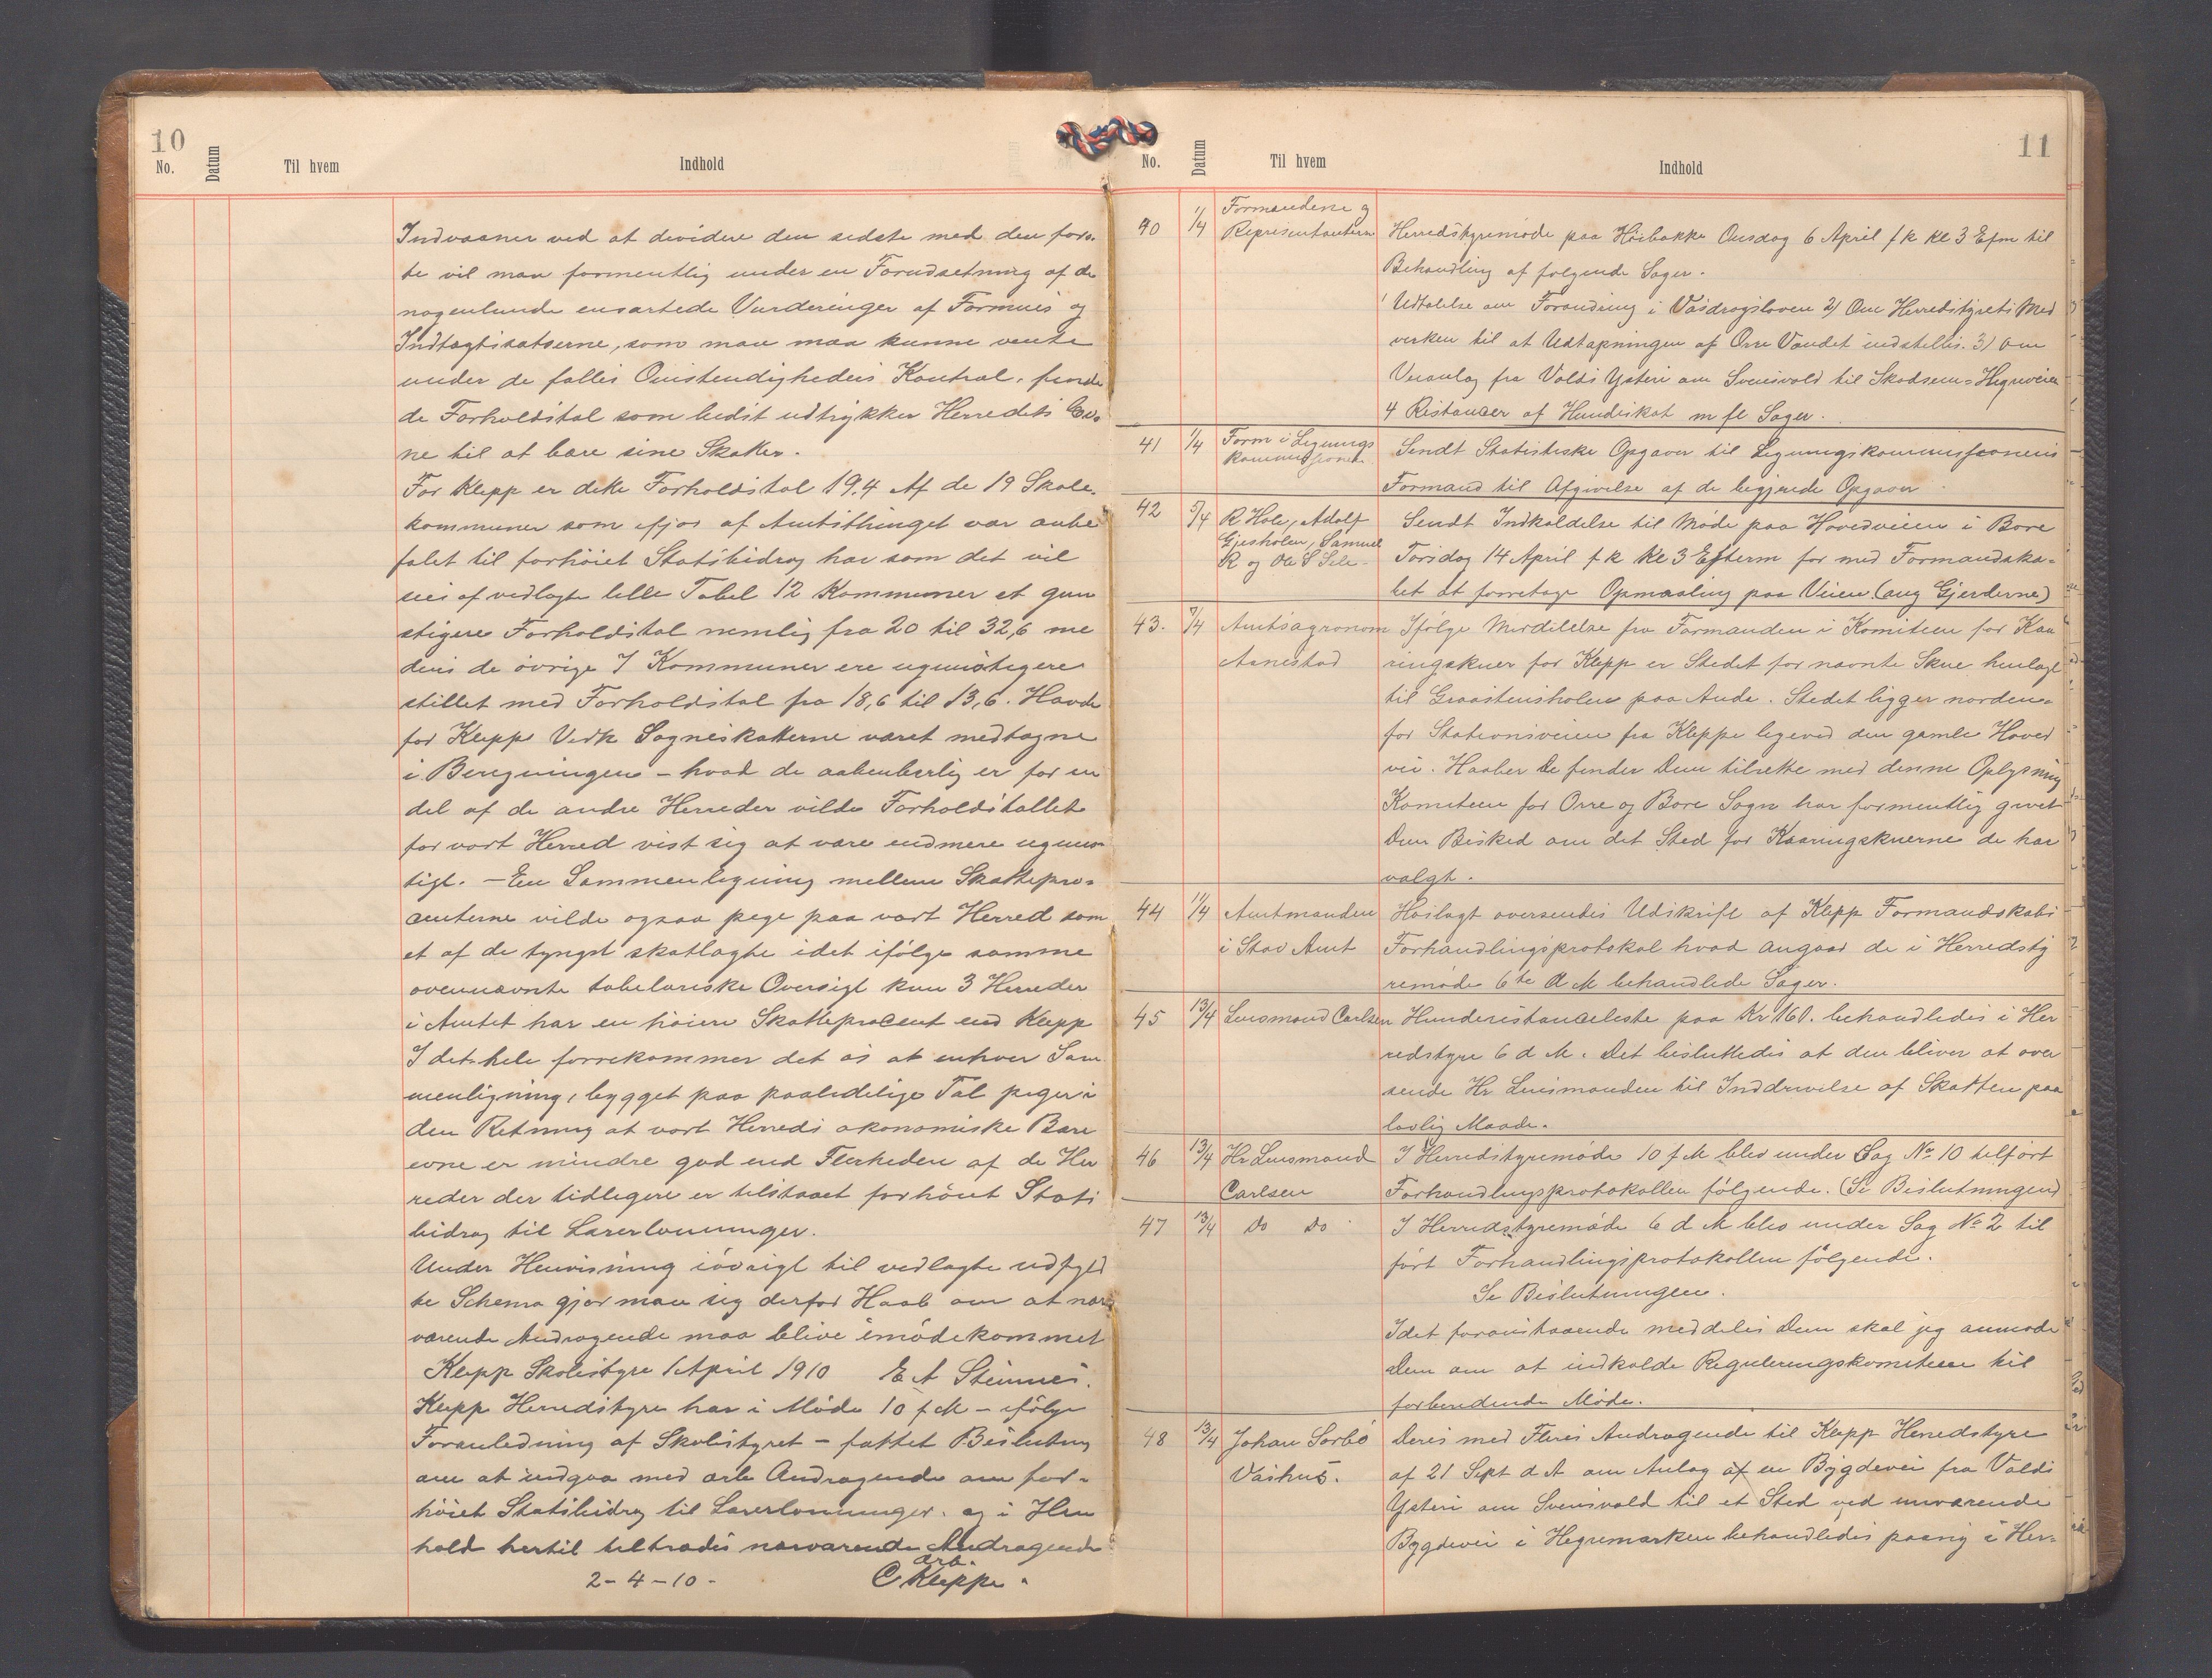 10
No. Datum Til hvem Indhold
Indvaaner ved at devidere den sidste med den førs-
te vil man formentlig under en Forudsetning af de
nogenlunde ensartede Vurderinger af Formues og
Indtægtssatserne, som man maa kunne vente
under de fælles Omstendigheders Kontrol, finde
de Forholdstal som bedst udtrykker Herredets Ev-
ne til at bære sine Skatter.
For Klepp er dette Forholdstal 19.4 Af de 19 Skole-
kommuner som ifjor af Amtsthinget var anbe
falet til forhöiet Statsbidrag har som det vil
sees af vedlagte lille Tabel 12 Kommuner et gun
stigere Forholdstal nemlig fra 20 til 32,6 me
dens de övrige 7 Kommuner ere ugunstigere
stillet med Forholdstal fra 18,6 til 13,6. Havde
for Klepps Vedk Sogneskatterne været medtagne
i Beregningen - hvad de aabenbarlig er for en
del af de andre Herreder vilde Forholdstallet
for vort Herred vist sig at være endmere uguns
tigt. - En Sammenligning mellem Skattepro-
centerne vilde ogsaa pege paa vort Herred som
et af de tyngst skatlagte idet ifölge samme
ovennævnte tabelariske Oversigt kun 3 Herreder
i Amtet har en höiere Skatteprocent end Klepp
I det hele forrekommer det os at enhver Sam
menligning, bygget paa paalidelige Tal peger i
den Retning at vort Herreds økonomiske Bære
evne er mindre god end Flerheden af de Her
reder der tidligere er tilstaaet forhöiet Stats
bidrag til Lærerlønninger.
Under Henvisning iövrigt til vedlagte udfyld
te Schema gjør man sig derfor Haab om at nær
værende Andragende maa blive imödekommet
Klepp Skolestyre 1 April 1910 E A Steinnes.
Klepp Herredstyre har i Möde 10 f M - ifölge
Foranledning af Skolestyret - fattet Beslutning
om at indgaa med ærb Andragende om for-
höiet Statsbidrag til Lærerlønninger. og i Hen
hold hertil tiltrædes nærværende Andragende
2-4-10- ærb.
C Kleppe.
11
No. Datum Til hvem Indhold
40 1/4 Formændene og
Representanterne Herredstyremöde paa Höibakke Onsdag 6 April f k kl 3 Efm til
Behandling af følgende Sager.
1 Udtalelse om Forandring i Vasdragsloven 2) Om Herredstyrets Med
virken til at Udtapningen af Orre Vandet indstilles. 3) Om
Veianlæg fra Volds Ysteri om Svensvold til Skadsem-Hegreveien
4 Ristancer af Hundeskat m fl Sager.
41 1/4 Form i Lignings
kommissionen Sendt Statistiske Opgaver til Ligningskommissionens
Formand til Afgivelse af de begjærede Opgaver
42 5/4 R Hole, Adolf
Gjesholen, Samuel
R og Ole S Sele. Sendt Indkaldelse til Möde paa Hovedveien i Bore
Torsdag 14 April f k Kl 3 Efterm for med Formandska-
bet at foretage Opmaaling paa Veien. (ang Gjerderne)
43. 7/4 Amtsagronom
Aanestad Ifölge Meddelelse fra Formanden i Komiteen for Kaa
ringskuer for Klepp er Stedet for nævnte Skue henlagt
til Graasteinsholen paa Anda. Stedet ligger norden-
for Stationsveien fra Kleppe ligeved den gamle Hoved
vei. Haaber De finder Dem tilrette med denne Oplysning
Komiteen for Orre og Bore Sogn har formentlig givet
Dem Besked om det Sted for Kaaringskuerne de har
valgt.
44 11/4 Amtmanden
i Stav Amt Höilagt oversendes Udskrift af Klepp Formandskabs
Forhandlingsprotokol hvad angaar de i Herredsty
remöde 6te d M behandlede Sager.
45 13/4 Lensmand Carlsen Hunderistanceliste paa Kr 160. behandledes i Her
redstyre 6 d M. Det besluttedes at den bliver at over
sende Hr Lensmanden til Inddrivelse af Skatten paa
lovlig Maade.
46 13/4 Hr Lensmand
Carlsen I Herredstyremöde 10 f M blev under Sag No 10 tilfört
Forhandlingsprotokollen fölgende. (Se Beslutningen)
47 13/4 Do Do I Herredstyremöde 6 d M blev under Sag No 2 til
fört Forhandlingsprotokollen fölgende.
Se Beslutningen.
Idet foranstaaende meddeles Dem skal jeg anmode
Dem om at indkalde Reguleringskomiteen til
forberedende Möde.
48 13/4 Johan Sörbö
Vashus. Deres med Fleres Andragende til Klepp Herredstyre
af 21 Sept d A om Anlæg af en Bygdevei fra Volds
Ysteri om Svensvold til et Sted ved nuværende
Bygdevei i Hegremarken behandledes paany i Her-